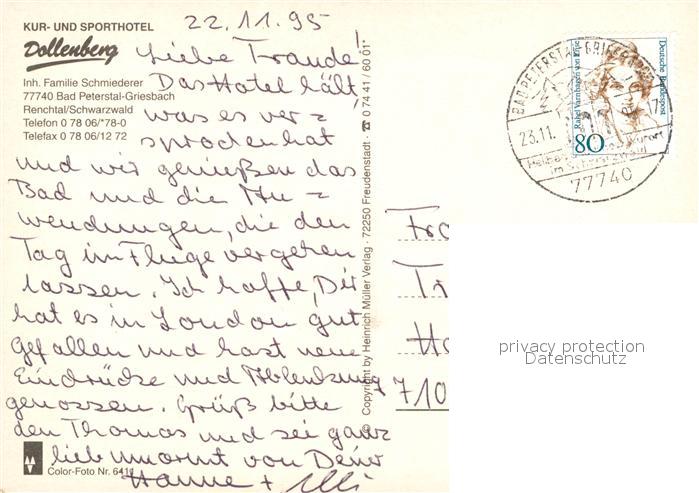 KUR- UND SPORTHOTEL
Dollenberg
Inh. Familie Schmiederer
77740 Bad Peterstal-Griesbach
Renchtal/Schwarzwald
Telefon 0 78 06/*78-0
Telefax 0 78 06/12 72
22.11.95
Liebe Traude!
Das Hotel hält,
was es ver=
sprochen hat
und wir genießen das
Bad und die An=
wendungen, die den
Tag im Fluge vergehen
lassen. Ich hoffe, Dir
hat es in London gut
gefallen und hast neue
Eindrücke und Ablenkung
genossen. Grüß bitte
den Thomas und sei ganz
lieb umarmt von Deiner
Hanne + Uli
Color-Foto Nr. 6411
© Copyright by Heinrich Müller Verlag · 72250 Freudenstadt · ☎ 0 74 41 / 60 01*
Deutsche Bundespost
Rahel Varnhagen von Ense
80
BAD PETERSTAL-GRIESBACH
23.11.
17
im Schwarzwald
77740
Fra
Tr
Ha
710
privacy protection
Datenschutz